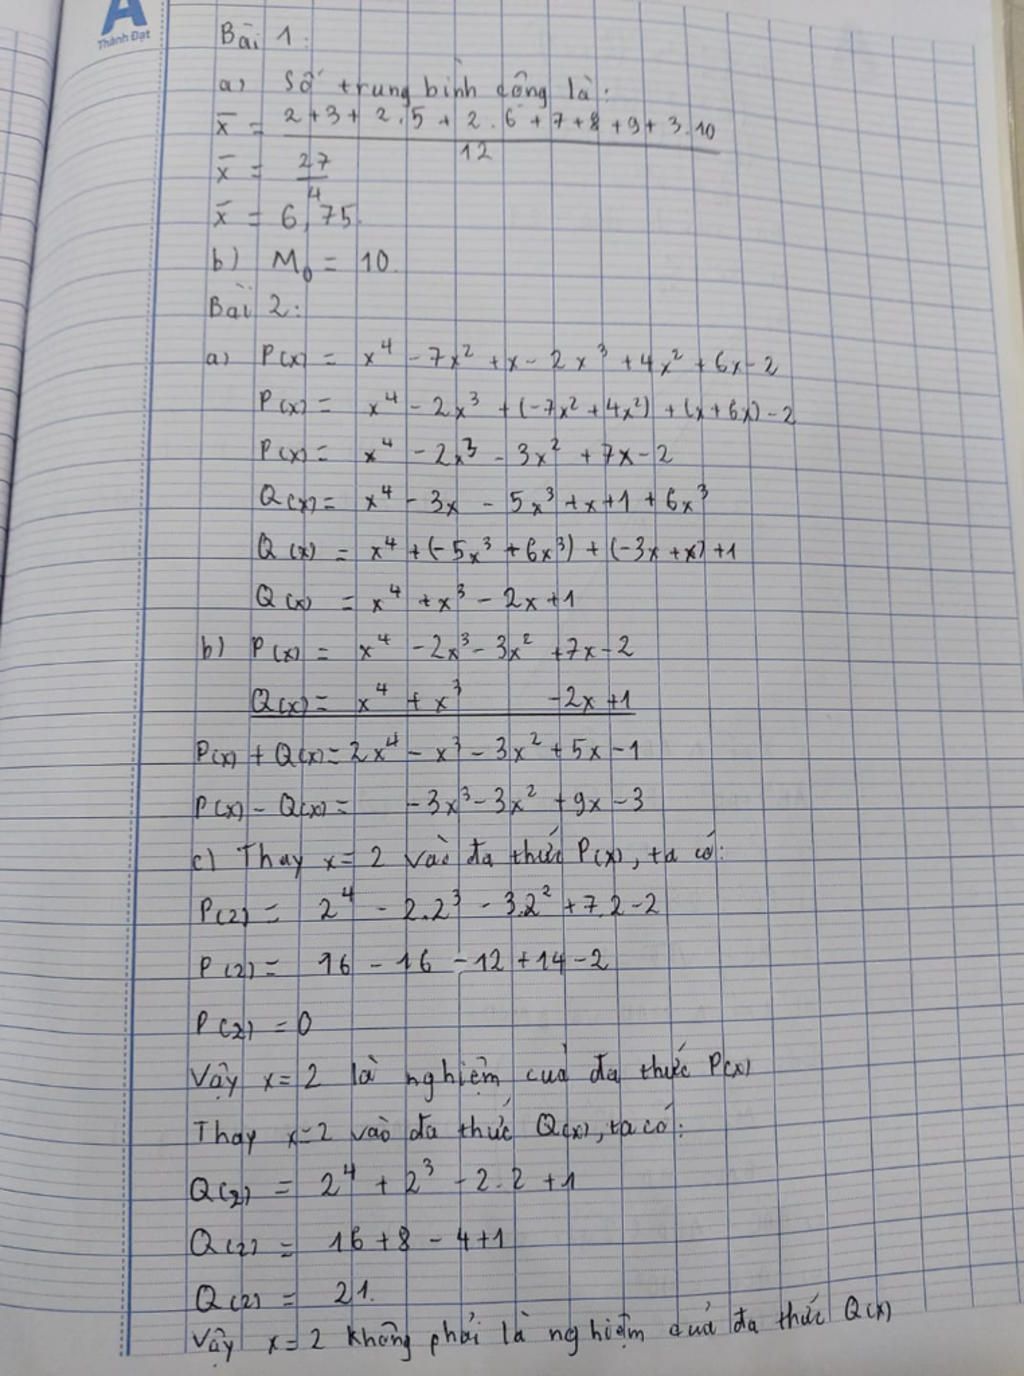 A
Thành Đạt
Bài 1:
a) Số trung bình cộng là:
x̄ = (2+3+2.5+2.6+7+8+9+3.10)/12
x̄ = 27/4
x̄ = 6,75
b) M₀ = 10
Bài 2:
a) P(x) = x⁴ - 7x² + x - 2x³ + 4x² + 6x - 2
P(x) = x⁴ - 2x³ + (-7x² + 4x²) + (x + 6x) - 2
P(x) = x⁴ - 2x³ - 3x² + 7x - 2
Q(x) = x⁴ - 3x - 5x³ + x + 1 + 6x³
Q(x) = x⁴ + (-5x³ + 6x³) + (-3x + x) + 1
Q(x) = x⁴ + x³ - 2x + 1
b) P(x) = x⁴ - 2x³ - 3x² + 7x - 2
Q(x) = x⁴ + x³ - 2x + 1
P(x) + Q(x) = 2x⁴ - x³ - 3x² + 5x - 1
P(x) - Q(x) = -3x³ - 3x² + 9x - 3
c) Thay x = 2 vào đa thức P(x), ta có:
P(2) = 2⁴ - 2.2³ - 3.2² + 7.2 - 2
P(2) = 16 - 16 - 12 + 14 - 2
P(2) = 0
Vậy x = 2 là nghiệm của đa thức P(x)
Thay x = 2 vào đa thức Q(x), ta có:
Q(2) = 2⁴ + 2³ - 2.2 + 1
Q(2) = 16 + 8 - 4 + 1
Q(2) = 21.
Vậy x = 2 không phải là nghiệm của đa thức Q(x)